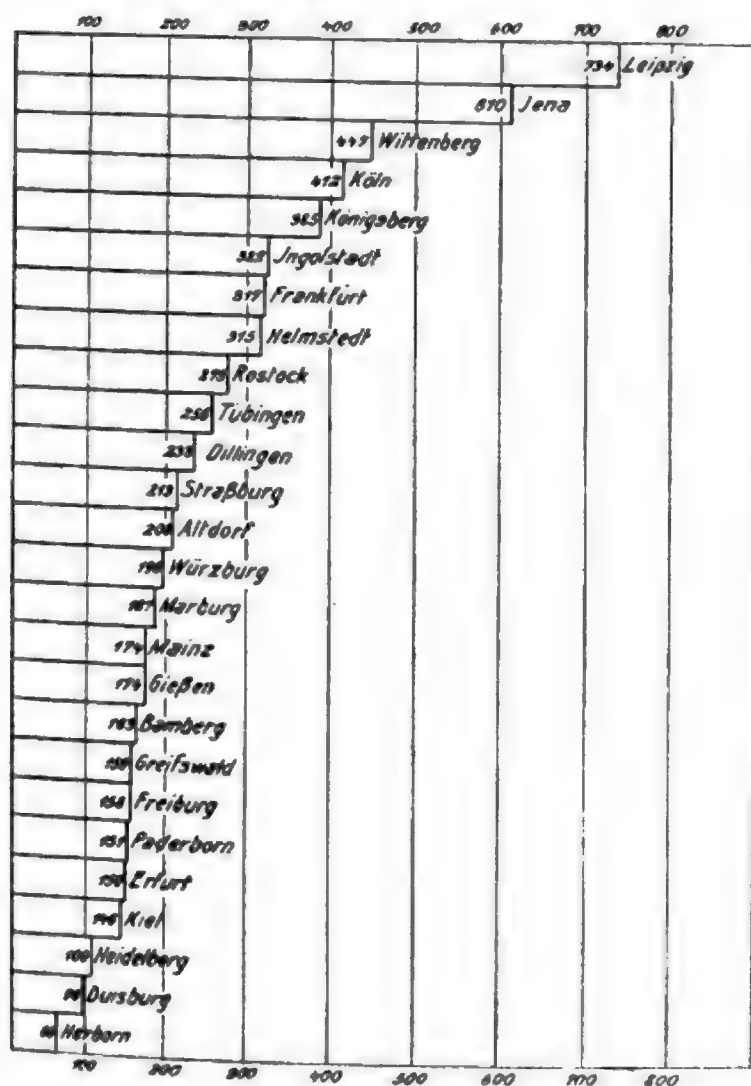 100 200 300 400 500 600 700 800
734 Leipzig
610 Jena
447 Wittenberg
412 Köln
385 Königsberg
Jngolstadt
317 Frankfurt
315 Helmstedt
Rostock
250 Tübingen
235 Dillingen
213 Straßburg
208 Altdorf
Würzburg
187 Marburg
174 Mainz
174 Gießen
163 Bamberg
Greifswald
158 Freiburg
151 Paderborn
150 Erfurt
Kiel
100 Heidelberg
Duisburg
Herborn
100 200 300 400 500 600 700 800